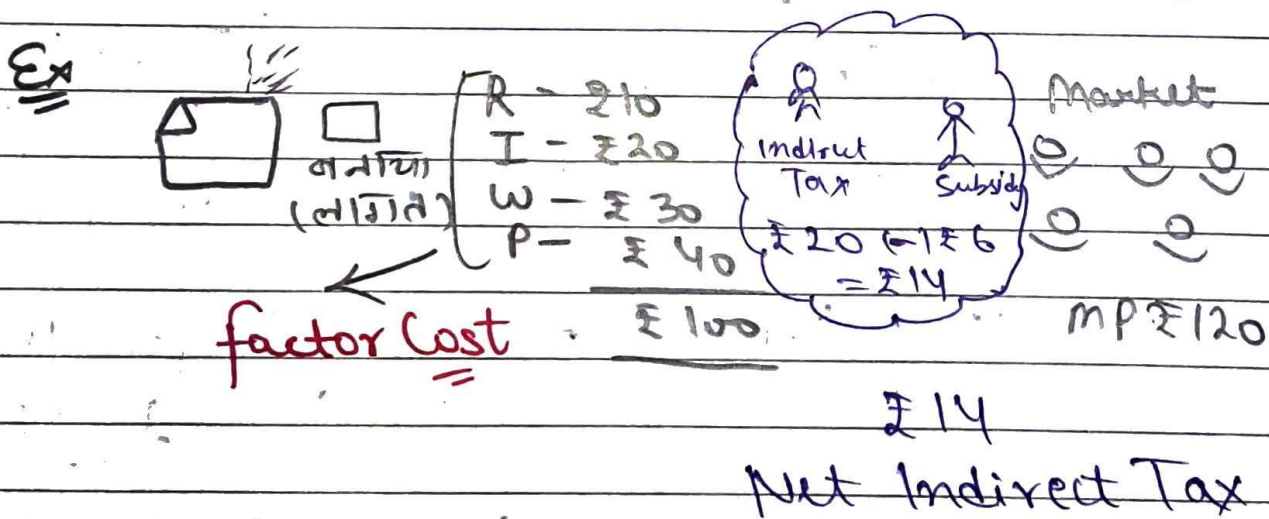 Ex
बनाया
(लागत)
R - ₹10
I - ₹20
W - ₹30
P - ₹40
₹100
factor Cost
Indirect
Tax
Subsidy
₹20 (-) ₹6
= ₹14
Market
MP ₹120
₹14
Net Indirect Tax